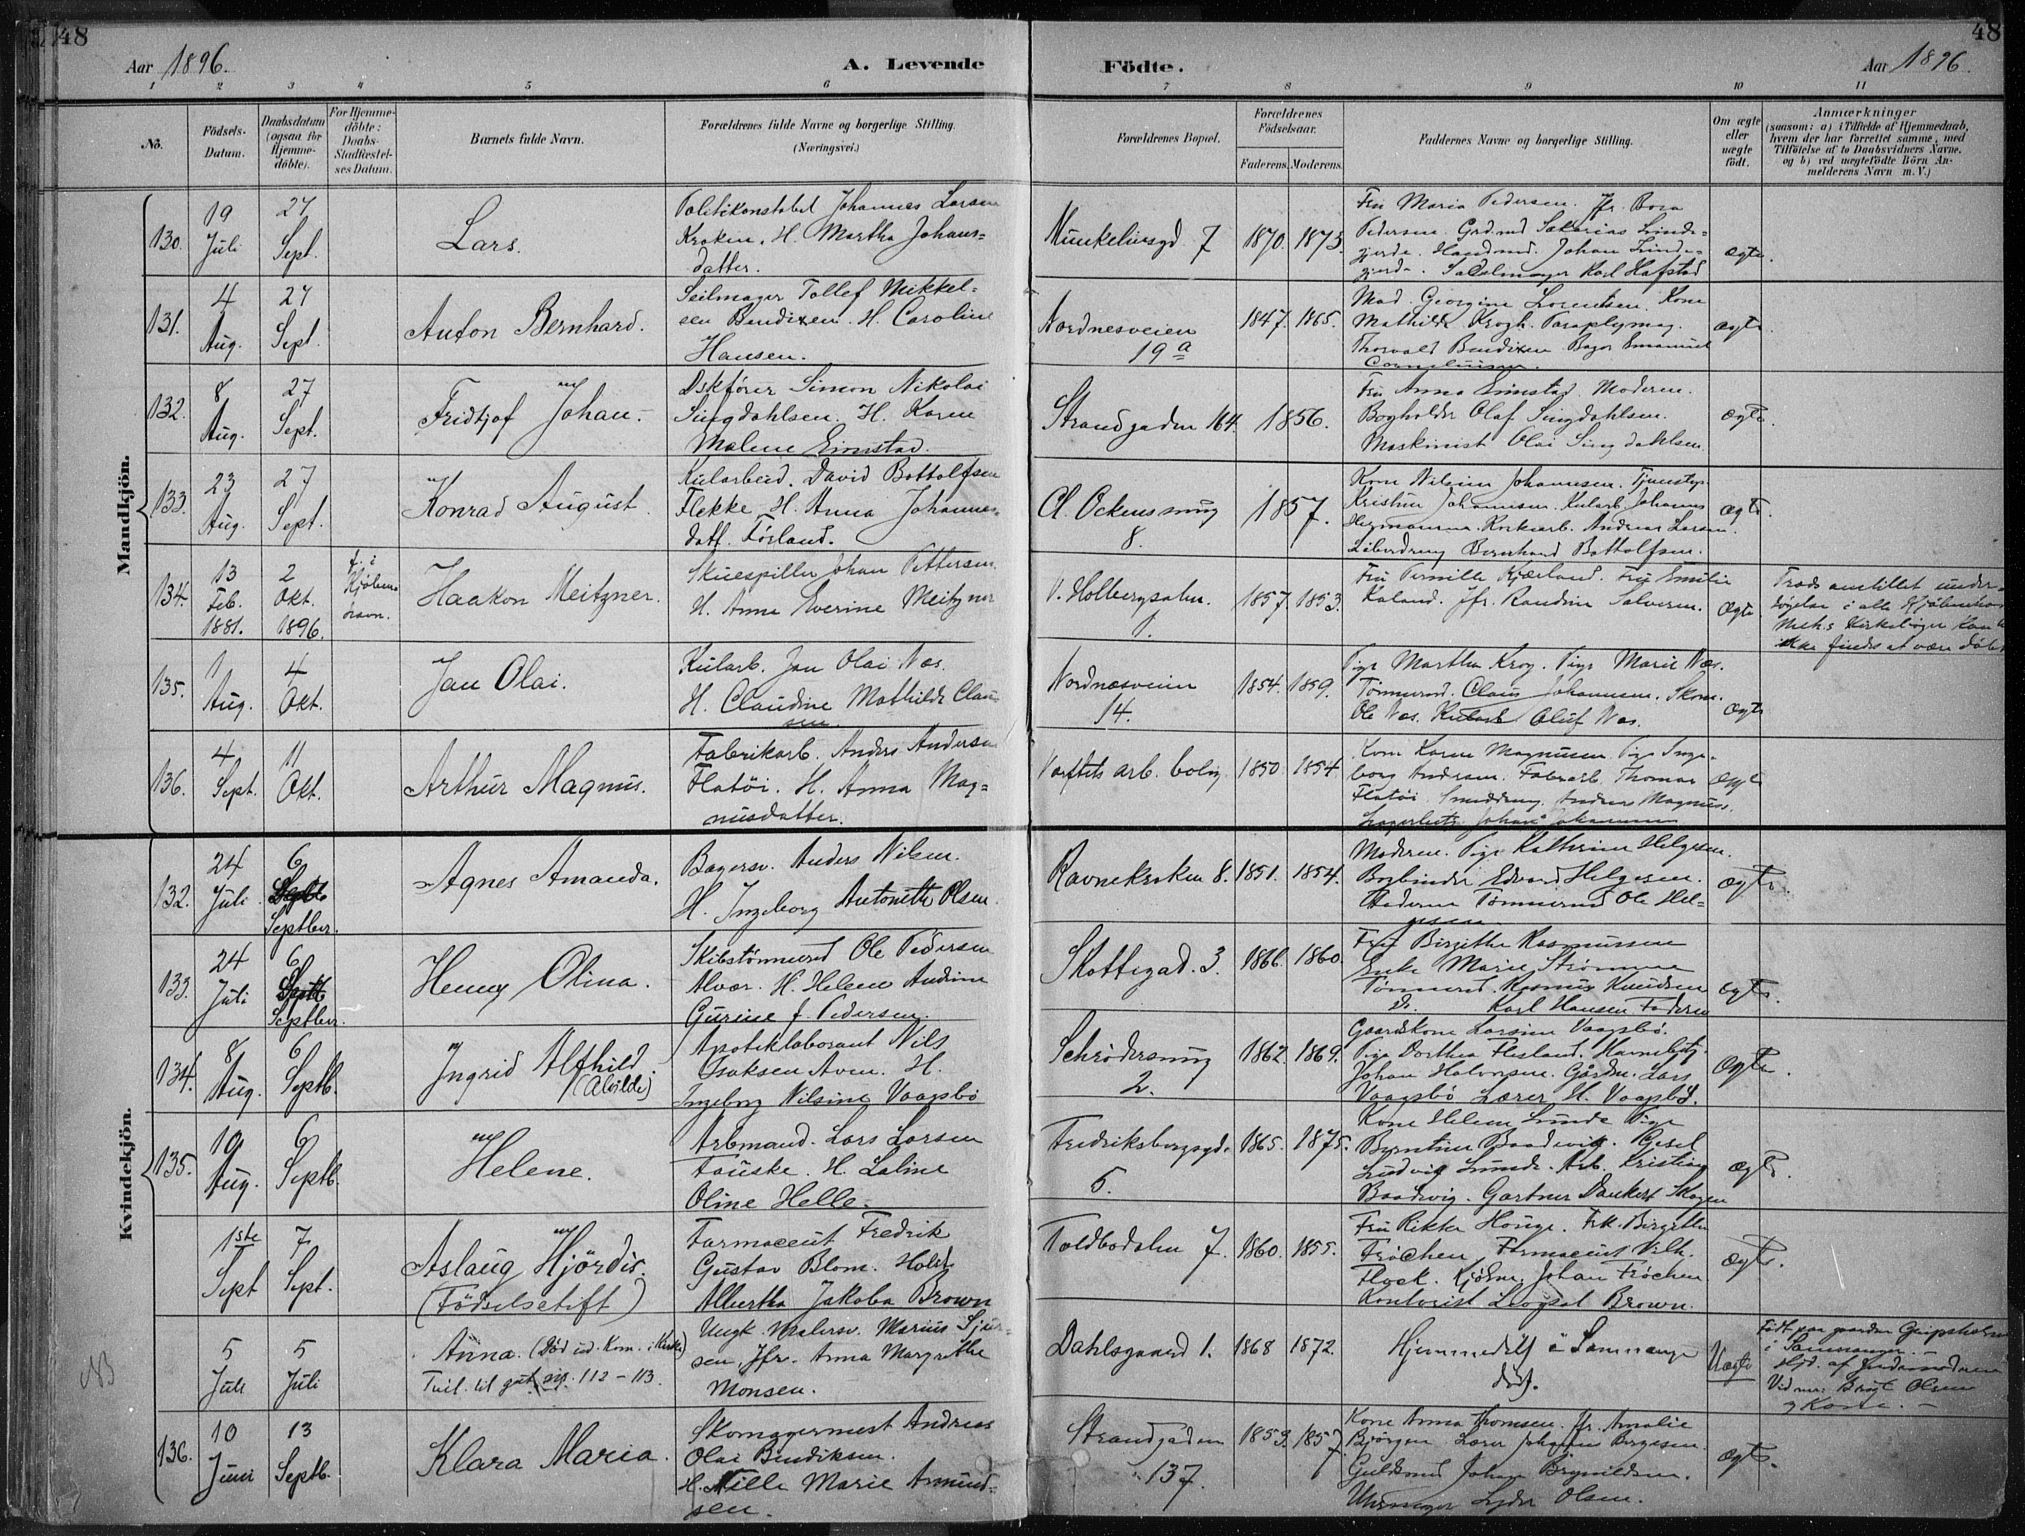 48
Aar 1896.
A. Levende
Födte.
Aar 1896.
48
1 2 3 4 5 6 7 8 9 10 11
No.
Födsels-
Datum.
Daabsdatum
(ogsaa for
Hjemme-
döbte).
For Hjemme-
döbte:
Daabs-
Stadfæstel-
ses Datum.
Barnets fulde Navn.
Forældrenes fulde Navne og borgerlige Stilling.
(Næringsvei.)
Forældrenes Bopæl.
Forældrenes
Födselsaar.
Faderens. Moderens.
Faddernes Navne og borgerlige Stilling.
Om ægte
eller
uægte
födt.
Anmærkninger
(saasom: a) i Tilfælde af Hjemmedaab,
hvem der har forrettet samme, med
Tilföielse af to Daabsvidners Navne,
og b) ved uægtefödte Börn An-
melderens Navn m. V.)
Mandkjön.
130.
19
Juli
27
Sept.
Lars.
Politikonstabel Johannes Larsen
Kroken. H. Martha Johans-
datter.
Munkelivsgd 7
1870. 1873.
Fru Maria Pedersen. Jfr. Bora
Pedersen. Grdmd Sakarias Linde-
gjerde. Handmd. Johan Linde-
gjerde. Sadelmager Karl Hafstad
ægte.
131.
4
Aug.
27
Sept.
Anton Bernhard.
Seilmager Tollef Mikkel-
sen Bendixen. H. Caroline
Hansen.
Nordnesveien
19 a
1847. 1865.
Mad. Georgine Lorentsen. Kone
Mathilde Krogh. Paraplymag.
Thorvald Bendixen. Bager Emanuel
Corneliussen.
ægte.
132.
8
Aug.
27
Sept.
Fridtjof Johan.
Dskförer Simon Nikolai
Singdahlsen. H. Karen
Malene Einstad.
Strandgaden 164.
1856.
Fru Anna Einstad. Moderen.
Bogholder Olaf Singdahlsen.
Maskinist Olai Singdahlsen
ægte.
133.
23
Aug.
27
Sept.
Konrad August.
Kularbeid. David Bottolfsen
Flekke. H. Anna Johannes-
datt. Förland.
Cl. Ockenssmug
8.
1857.
Kone Nilsine Johannesen. Tjenestep.
Kristine Johannesen. Kularb. Johannes
Andreas Larsen.
Bernhard Bottolfsen.
ægte.
134.
13
Feb.
1881.
2
Okt.
1896.
f. i
Kjöben-
havn.
Haakon Meitzner.
Skuespiller Johan Pettersen
H. Anna Everine Meitzner
V. Holbergsalm.
1.
1857. 1853.
Fru Pernille Kjærland. Fru Emilie
Kaland. Jfr. Randine Salvesen.
ægte.
Trods anstillet under-
sögelse i alle Kjöbenhavns
Kirkeböger kan
ikke findes at være döbt
135.
1
Aug.
4
Okt.
Jan Olai.
Kularb. Jan Olai Næs.
H. Claudine Mathilde Clau-
sen.
Nordnæsveien
14.
1854. 1859.
Pige Martha Krog. Pige Marie Næs.
Tömmermd. Claus Johannesen. Skom.
Ole Næs. Kularb. Oluf Næs.
ægte
136.
4
Sept.
11
Okt.
Arthur Magnus.
Fabrikarb. Anders Andersen
Flatöi. H. Anna Mag-
nusdatter.
Værftets arb. bolig
1850 1854.
Kone Karen Magnussen. Pige Inge-
borg Andersen. Fabrarb. Thomas
Flatöi. Smeddreng Andreas Magnuss.
Johan Johannesen
ægte
Kvindekjön.
132.
24
Juli
6
Septber.
Agnes Amanda.
Bagersv. Anders Nilsen.
H. Ingeborg Antonette Olsen.
Ravnekroken 8.
1851. 1854.
Moderen. Pige Kathrine Helgesen.
Bogbinder Edvard Helgesen.
Faderen Tömmermd Ole Hel-
gesen
ægte.
133.
24
Juli
6
Septber.
Henny Olina.
Skibstömmermd Ole Pedersen
Alvær. H. Helene Andine
Gurine f. Pedersen.
Skottegad. 3.
1866. 1860.
Fru Birgithe Rasmussen
Enke Marie Strömme
Tömmermd. Rasmus Knudsen
Do. Karl Hansen Faderen
ægte.
134.
8
Aug.
6
Septb.
Ingrid Alfhild
(Alvilde).
Apotheklaborant Nils
Isaksen Aven. H.
Ingeborg Nilsine Vaagsbö
Schrödersmug
2.
1862. 1869.
Gaardskone Larsine Vaagsbö.
Pige Dorthea Flesland. Havnebetj.
Johan Halvorsen. Gårdbr. Lars
Vaagsbö Lærer H. Vaagsbö.
ægte.
135.
19
Aug.
6
Septb.
Helene.
Arbmand. Lars Larsen
Fauske. H. Laline
Oline Helle.
Fredriksborgsgd.
5.
1865. 1875.
Kone Helene Lunde Pige
Bergntine Baadsvig. Gesel
Ludvig Lunde. Arb. Kristian
Baadsvig. Gartner Dankert Skagen
ægte.
1ste
Sept
7
Sept.
Aslaug Hjördis.
(Födselsstift)
Farmaceut Fredrik
Gustav Blom. Holst
Albertha Jakoba Brown
Toldbodalm 7.
1860. 1855.
Fru Rikka Houge. Frk. Birgitte
Fröchen. Farmaceut Vilh.
Flock. Kjöbm. Johan Fröchen
Kontorist Brown.
ægte.
NB
5
Juli
5
Juli
Anna. (Död ud. Kom. i Kirke)
Tvil. til gut. no. 112-113.
Ungk. Malersv. Marius Sjur-
sen. Jfr. Anna Margrethe
Monsen.
Dahlsgaard 1.
1868 1872.
Hjemmedöbt i Samnanger
död.
Uægte
Födt paa gaarden
i Samnanger. -
Hjd. af Jordemoderen
Vidner: Olsen
og Kone. -
136.
10
Juni
13
Septb.
Klara Maria.
Skomagermest Andreas
Olai Bendiksen.
H. Nille Marie Amund-
sen.
Strandgaden
137.
1853. 1857.
Kone Anna Thomsen. Jfr. Amalie
Bjorgen. Lærer Johannes Börgesen.
Guldsmed Johan Brynildsen.
Uhrmager Lyder Olsen.
ægte.